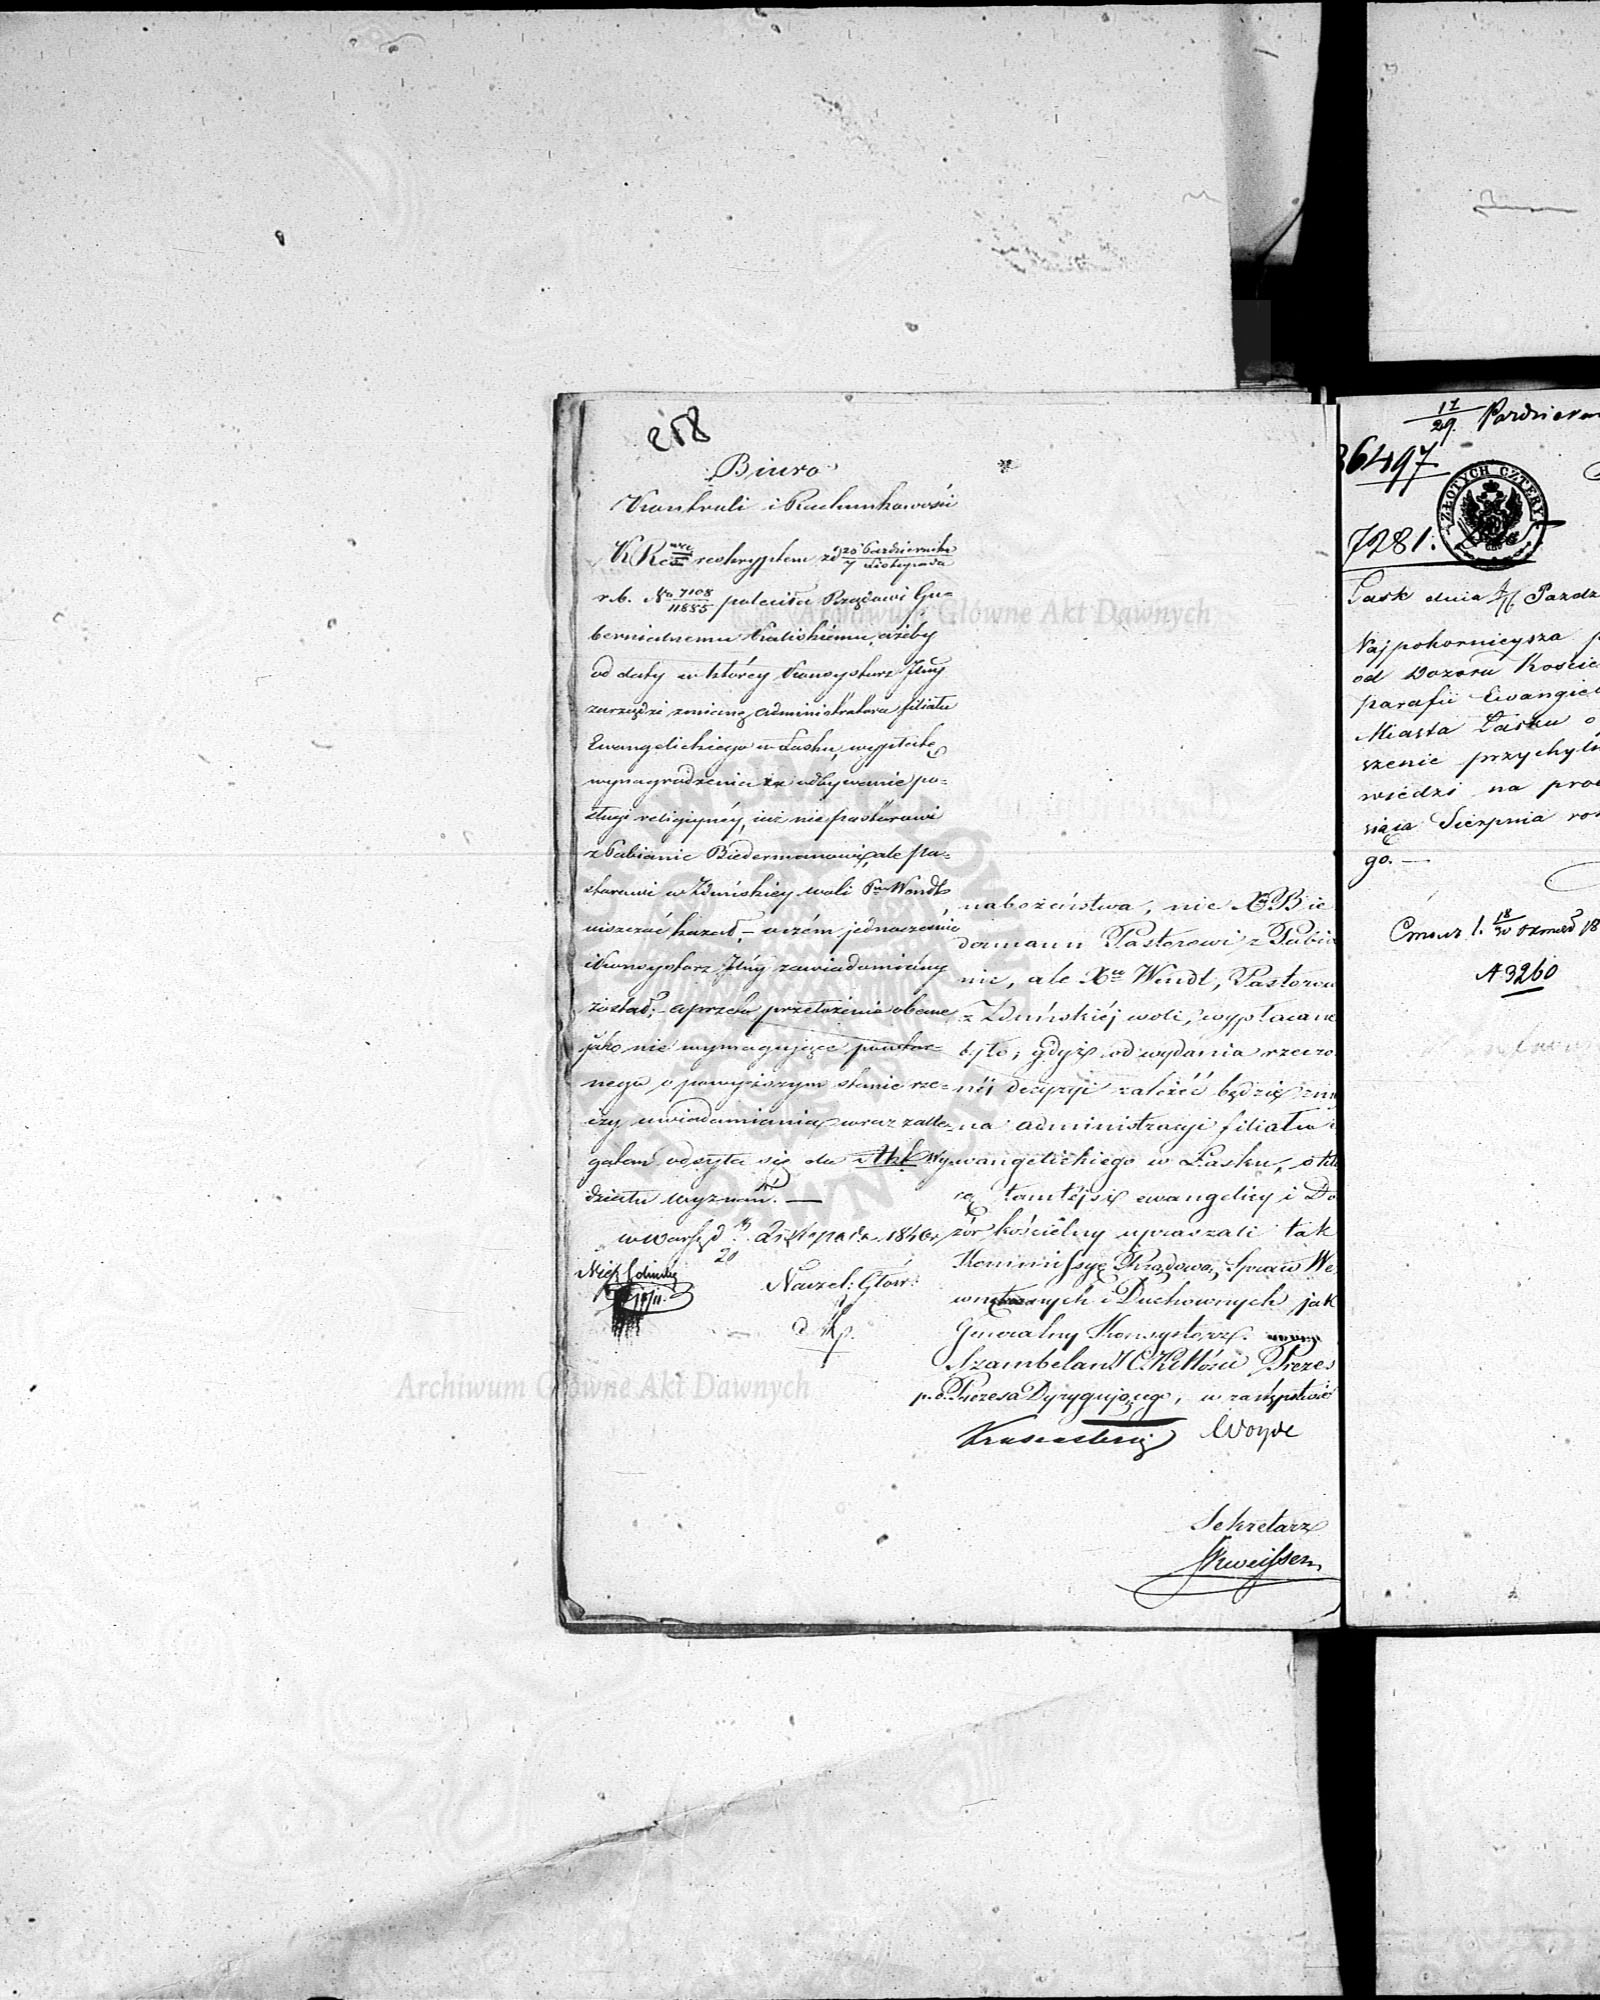 258
Biuro
Kontroli i Rachunkowości
reskryptem z d 26 Października
7 Listopada
r.b. No 7108
11885 poleciła Rządowi Gu-
bernialnemu Kaliskiemu, ażeby
od daty w którey Konsystorz Jlny
zarządzi zmianę administratora filiału
Ewangelickiego w Łasku, wypłatę
wynagrodzenia za odbywanie po-
sługi religiyney, już nie pastorowi
z Pabianic Biedermanowi, ale pa-
storowi w Zduńskiey woli Wendt
uiszczać kazał, – o czém jednocześnie
i Konsystorz Jlny zawiadomiony
został; – a przeto przełożenie obecne
jako nie wymagające powtór-
nego o powyższym stanie rze-
czy uwiadomienia, wraz z alle-
gatem odsyła się do Wy-
działu Wyznań. —
w Warsz d 8
20 Listopada 1846 r
Naczel: Głów:
nabożeństwa, nie Xdzu Bie
dermann Pastorowi z Pabia
nic, ale Wendt, Pastorow
z Zduńskiéj woli, wypłacane
było; gdyż od wydania rzeczo
néj decyzyi zależéć będzie zmi
na administracyi filiału e
wangelickiego w Łasku, o któ
rą tamtejsi ewangelicy i Do
zór kościelny upraszali tak
Kommissyę Rządową Spraw We
wnętrznych i Duchownych jak
Generalny Konsystorz.
Szambelan Prezes
p.o. Prezesa Dyrygującego, w zastępstwie
Woyde
Sekretarz
17
29 Paździer
36497
ZŁOTYCH CZTERY
7281.
Łask dnia Paźdz
Najpokornieysza p
od Dozoru Kościel
parafii Ewangiel
Miasta Łasku o
szenie przychyln
wiedzi na proś
siąca Sierpnia rok
go. —
18
30
A 3260
Archiwum Główne Akt Dawnych
Archiwum Główne Akt Dawnych